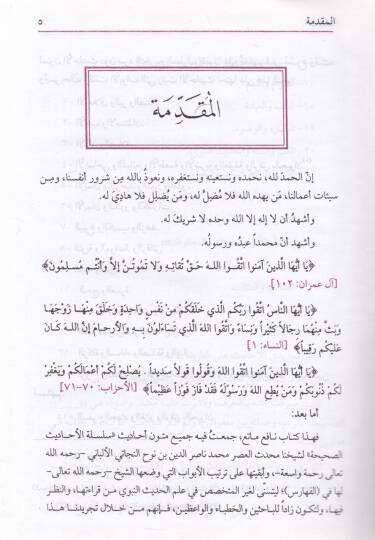 المقدمة
٥
المُقَدِّمَة
إنّ الحمدَ لله، نحمده ونستعينه ونستغفره، ونعوذُ بالله مِن شرورِ أنفسنا، ومِن
سيئات أعمالنا، مَن يهده الله فلا مُضلَّ له، ومَن يُضلِل فلا هاديَ له.
وأشهدُ أن لا إله إلا الله وحده لا شريك له.
وأشهدُ أنّ محمداً عبدُه ورسولُه.
﴿يَا أَيُّهَا الَّذينَ آمَنوا اتَّقُـوا اللهَ حَـقَّ تُقاتِـهِ وَلا تَمُوتُـنَّ إلاَّ وَأَنْتُـم مُسلِمُونَ﴾
[آل عمران: ١٠٢].
﴿يَا أَيُّهَا النَّاسُ اتَّقُوا رَبَّكُم الَّذي خَلَقَكُمْ مِنْ نَفْسٍ وَاحِدَةٍ وَخَلَقَ مِنْهَا زَوْجَهَا
وَبَثَّ مِنْهُمَا رِجَالاً كَثْيراً وَنِسَاءً وَاتَّقُوا اللهَ الَّذي تَسَاءَلُونَ بِـهِ وَالأَرحـامَ إِنَّ اللهَ كَـانَ
عَلَيكُم رَقِيباً﴾ [النساء: ١]
﴿يَا أَيُّهَا الَّذينَ آمَنُوا اتَّقُوا اللهَ وَقُولُوا قَوْلاً سَدِيداً . يُصْلِحْ لَكُمْ أَعْمَالَكُمْ وَيَغْفِرْ
لَكُمْ ذُنُوبَكُمْ وَمَنْ يُطِعِ اللهَ وَرَسُولَهُ فَقَدْ فَازَ فَوْزاً عَظِيْماً﴾ [الأحزاب: ٧٠-٧١]
أما بعد:
فهذا كتاب نافع ماتع، جمعتُ فيه جميـع متون أحاديث «سلسلة الأحاديـث
الصحيحة» لشيخنا محدث العصر محمد ناصر الدين بن نوح النجاتي الألباني -رحمه الله
تعالى رحمة واسعة-، وأبقيتها على ترتيب الأبواب التي وضعها الشيخ -رحمه الله تعالى-
لها في (الفهارس)؛ ليتسنّى لغير المتخصص في علم الحديث النبوي مـن قراءتهـا، والنظر
فيهـا، ولتكون زاداً للباحثين والخطباء والواعظين، فـإنهم مـن خلال تجريدنـا هـذا